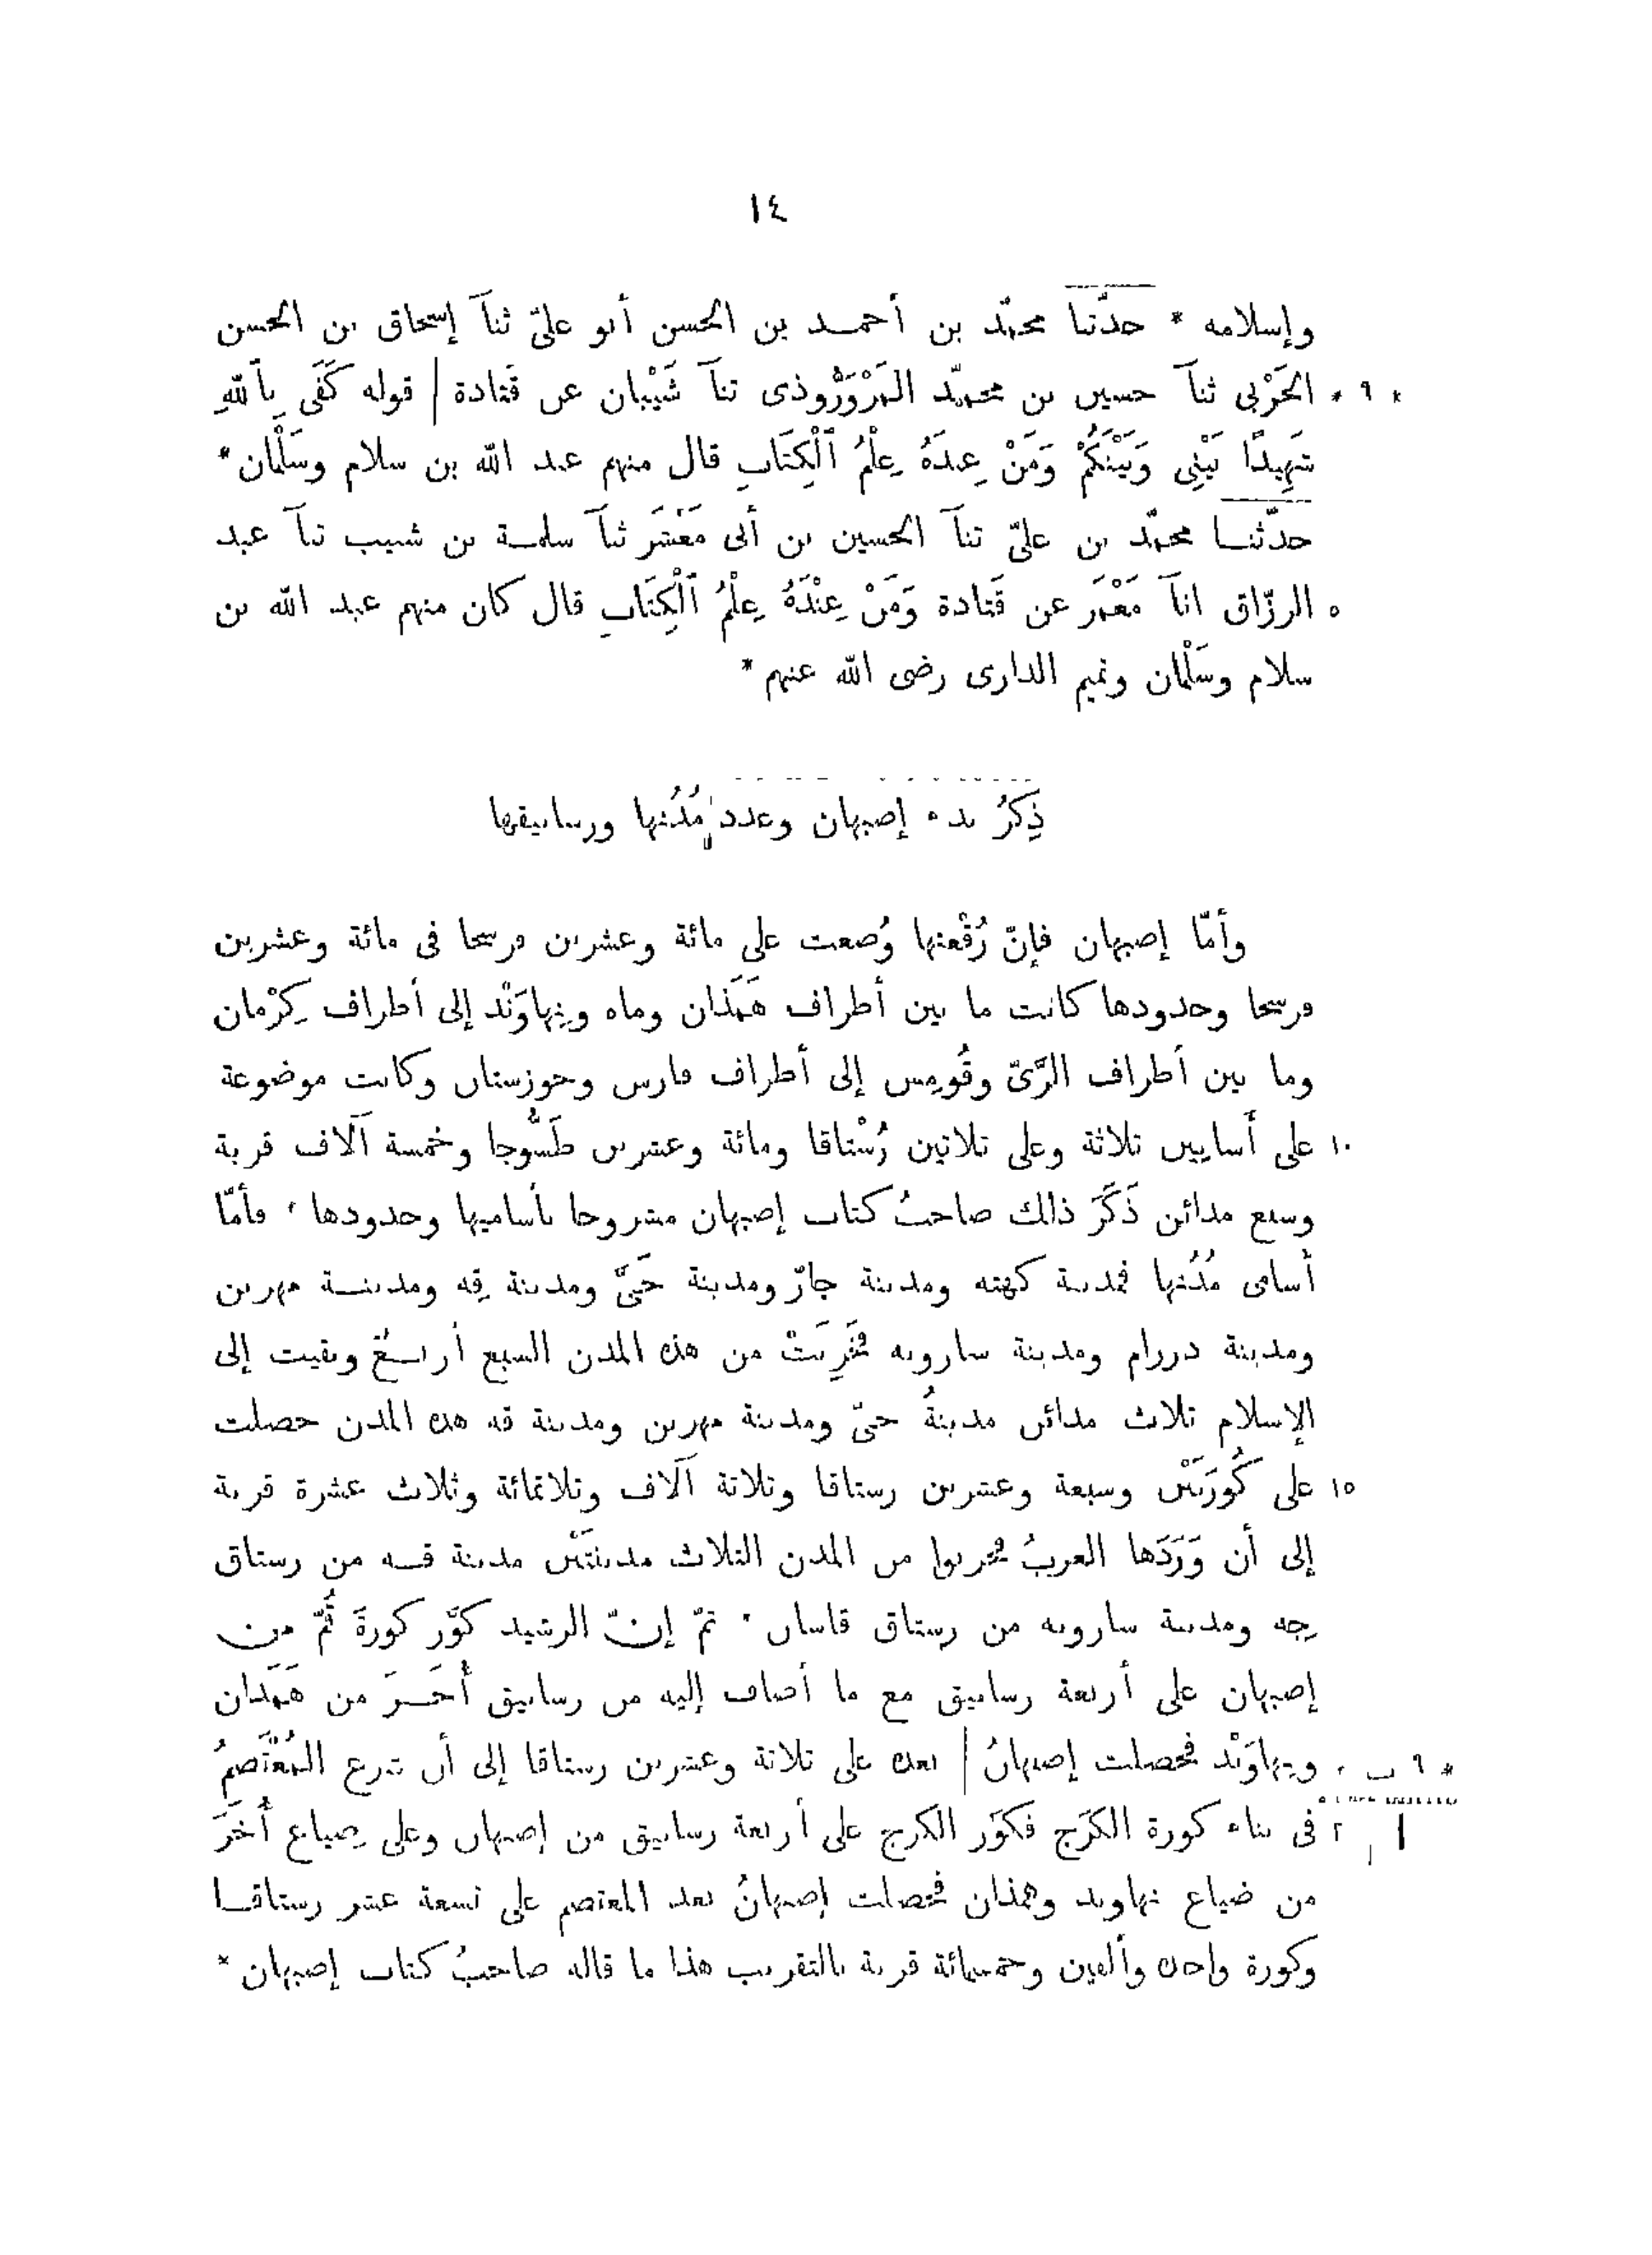 ١٤
وإسلامه * حدّثنا محمّد بن أحمد بن الحسن أبو علىّ ثنآ إسحاق بن الحسن
* ٩ * الحَرْبى ثنآ حسين بن محمّد المَرْوَرُّوذى ثنآ شَيْبان عن قَتادة | قوله كَفَى بِٱللّٰهِ
شَهِيدًا بَيْنِى وَبَيْنَكُمْ وَمَنْ عِندَهُ عِلْمُ ٱلْكِتَابِ قال منهم عبد اللّه بن سلام وسَلْمان *
حدّثنا محمّد بن علىّ ثنآ الحسين بن أبى مَعْشَر ثنآ سلمة بن شبيب ثنآ عبد
٥ الرزّاق انآ مَعْمَر عن قَتادة وَمَنْ عِنْدَهُ عِلْمُ ٱلْكِتَابِ قال كان منهم عبد اللّه بن
سلام وسَلْمان وتميم الدارى رضى اللّه عنهم *
ذِكرُ بدء إصبهان وعدد مُدُنها ورساتيقها
وأمّا إصبهان فإنّ رُقْعتها وُضعت على مائة وعشرين فرسخا فى مائة وعشرين
فرسخا وحدودها كانت ما بين أطراف هَمَذان وماه ونِهاوَنْد إلى أطراف كِرْمان
وما بين أطراف الرَّىّ وقُومِس إلى أطراف فارس وخوزستان وكانت موضوعة
١٠ على أساتين ثلاثة وعلى ثلاثين رُسْتاقا ومائة وعشرين طَسُّوجا وخمسة آلاف قرية
وسبع مدائن ذَكَرَ ذلك صاحبُ كتاب إصبهان مشروحا بأساميها وحدودها ، فأمّا
أسامى مُدُنها فمدينة كهثه ومدينة جارّ ومدينة جَىّ ومدينة قِه ومدينة مهربن
ومدينة دررام ومدينة سارويه فخَرِبَتْ من هذه المدن السبع أربعٌ وبقيت إلى
الإسلام ثلاث مدائن مدينةُ جىّ ومدينة مهربن ومدينة قه هذه المدن حصلت
١٥ على كُورَتَيْن وسبعة وعشرين رستاقا وثلاثة آلاف وثلاثمائة وثلاث عشرة قرية
إلى أن وَرَدَها العربُ فخربوا من المدن الثلاث مدينتَيْن مدينة قه من رستاق
قِه ومدينة سارويه من رستاق قاسان ، ثمّ إنّ الرشيد كوَّر كورةَ قُمّ من
إصبهان على أربعة رساتيق مع ما أضاف إليه من رساتيق أُخَرَ من هَمَذان
* ٩ ب * ونِهاوَنْد فحصلت إصبهانُ | بعده على ثلاثة وعشرين رستاقا إلى أن شرع المُعْتَصِمُ
٢ فى بناء كورة الكَرَج فكوَّر الكرج على أربعة رساتيق من إصبهان وعلى ضِياع أُخَرَ
من ضياع نهاوند وهمذان فحصلت إصبهانُ بعد المعتصم على تسعة عشر رستاقا
وكورة واحدة وألفين وخمسمائة قرية بالتقريب هذا ما قاله صاحبُ كتاب إصبهان *